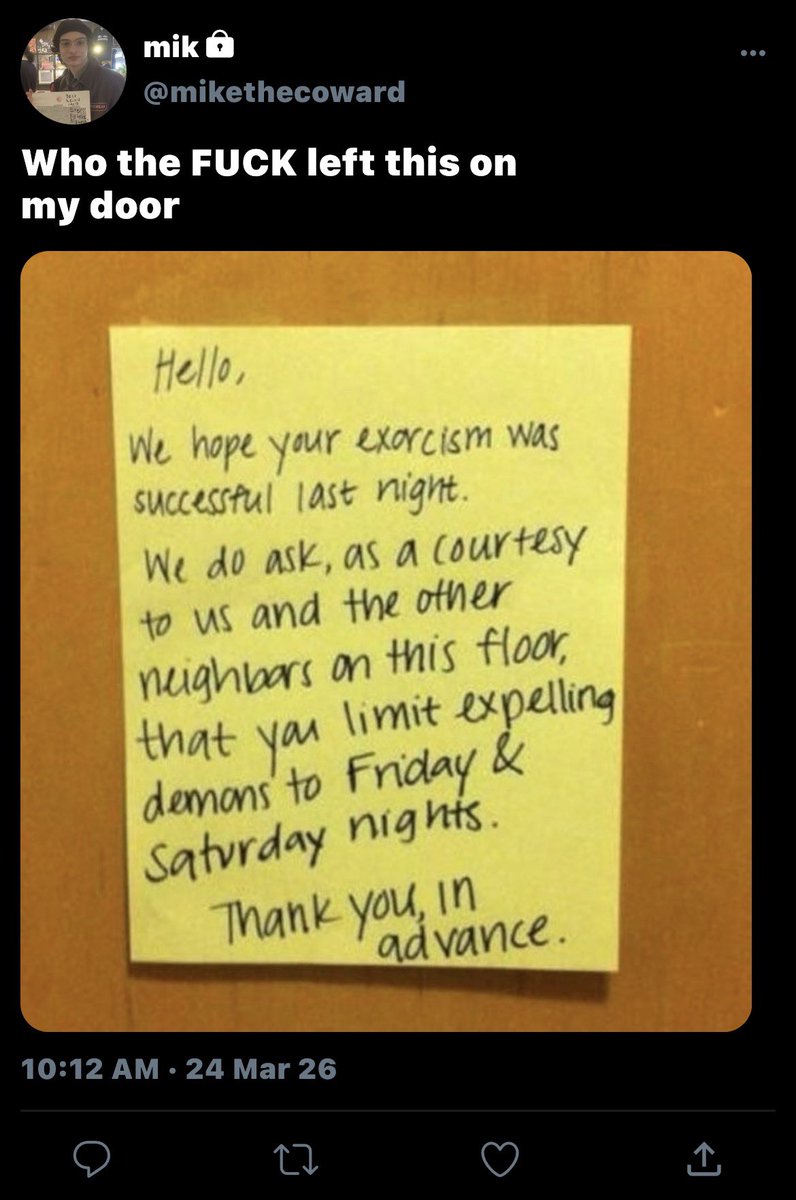 mik
@mikethecoward
Who the FUCK left this on
my door
Hello,
We hope your exorcism was
successful last night.
We do ask, as a courtesy
to us and the other
neighbors on this floor,
that you limit expelling
demons to Friday &
Saturday nights.
Thank you, in
advance.
10:12 AM · 24 Mar 26